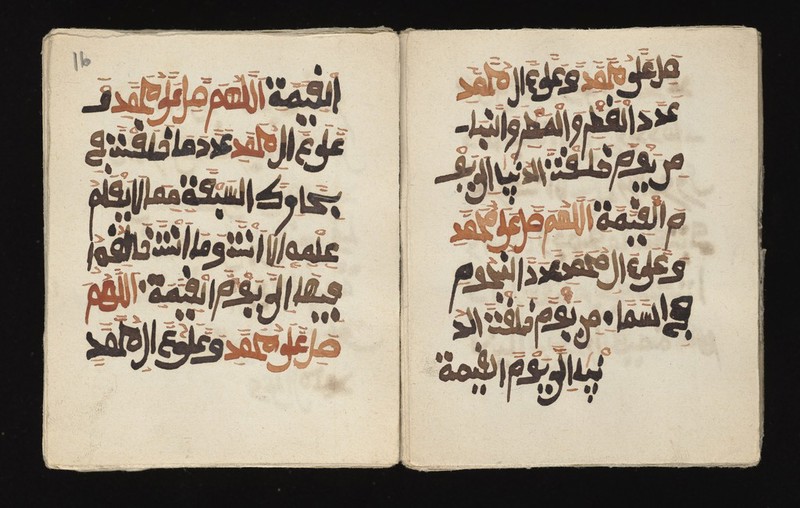 صل على محمد وعلى ءال محمد
عدد القطر والمطر والنبا
من يوم خلقت الدنيا الى يو
م القيمة اللهم صل على محمد
وعلى ءال محمد عدد النجوم
في السماء من يوم خلقت الد
نيا الى يوم القيمة
16
القيمة اللهم صل على محمد و
على ءال محمد عدد ما خلقت في
بحارك السبعة مما لا يعلم
علمه الا انت وما انت خالقه
فيها الى يوم القيمة اللهم
صل على محمد وعلى ءال محمد